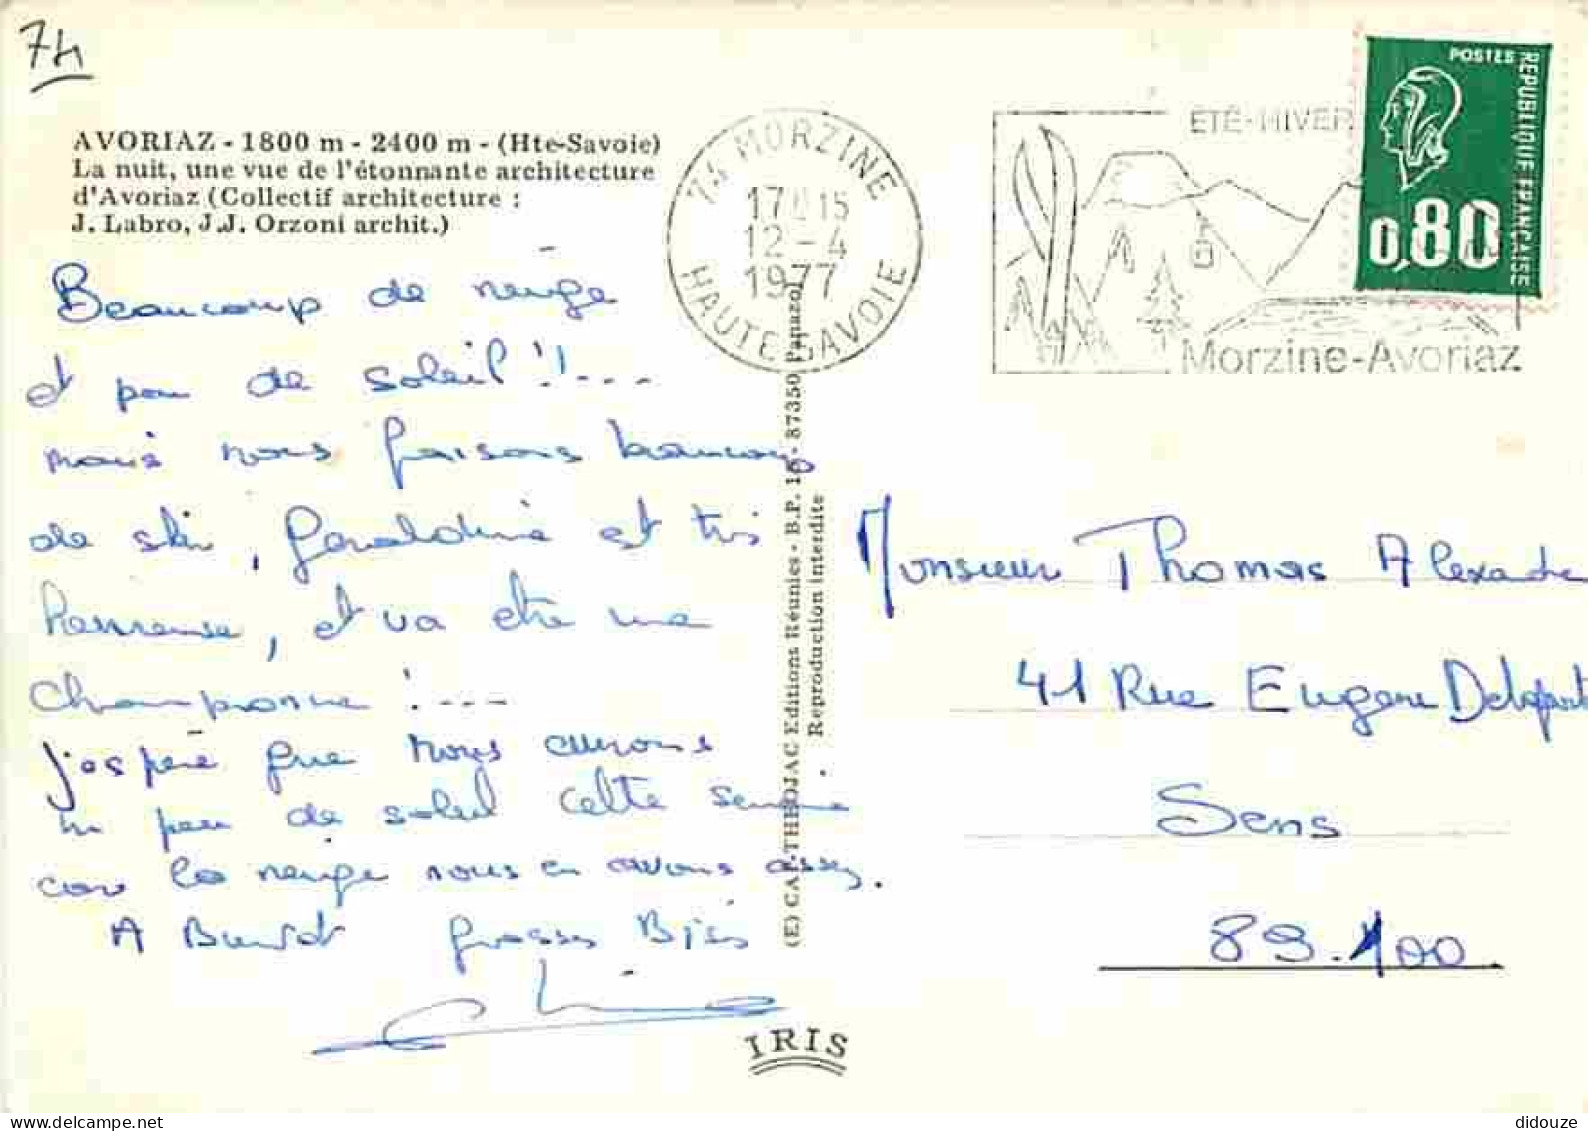 74
AVORIAZ - 1800 m - 2400 m - (Hte-Savoie)
La nuit, une vue de l'étonnante architecture
d'Avoriaz (Collectif architecture :
J. Labro, J.J. Orzoni archit.)
Beaucoup de neige
et peu de soleil !!---
mais nous faisons beaucoup
de ski, Géraldine est très
heureuse, et va être une
championne !---
j'espère que nous aurons
un peu de soleil cette semaine
car la neige nous en avons assez.
A Bientôt grosses Bises
74 MORZINE
17H15
12-4
1977
HAUTE-SAVOIE
ETE-HIVER
Morzine-Avoriaz
POSTES
REPUBLIQUE FRANÇAISE
0,80
(E) CAP-THEOJAC Editions Réunies - B.P. 18 - 87350 Panazol
Reproduction interdite
Monsieur Thomas Alexandre
41 Rue Eugène
Sens
89.100
IRIS
delcampe.net
didouze